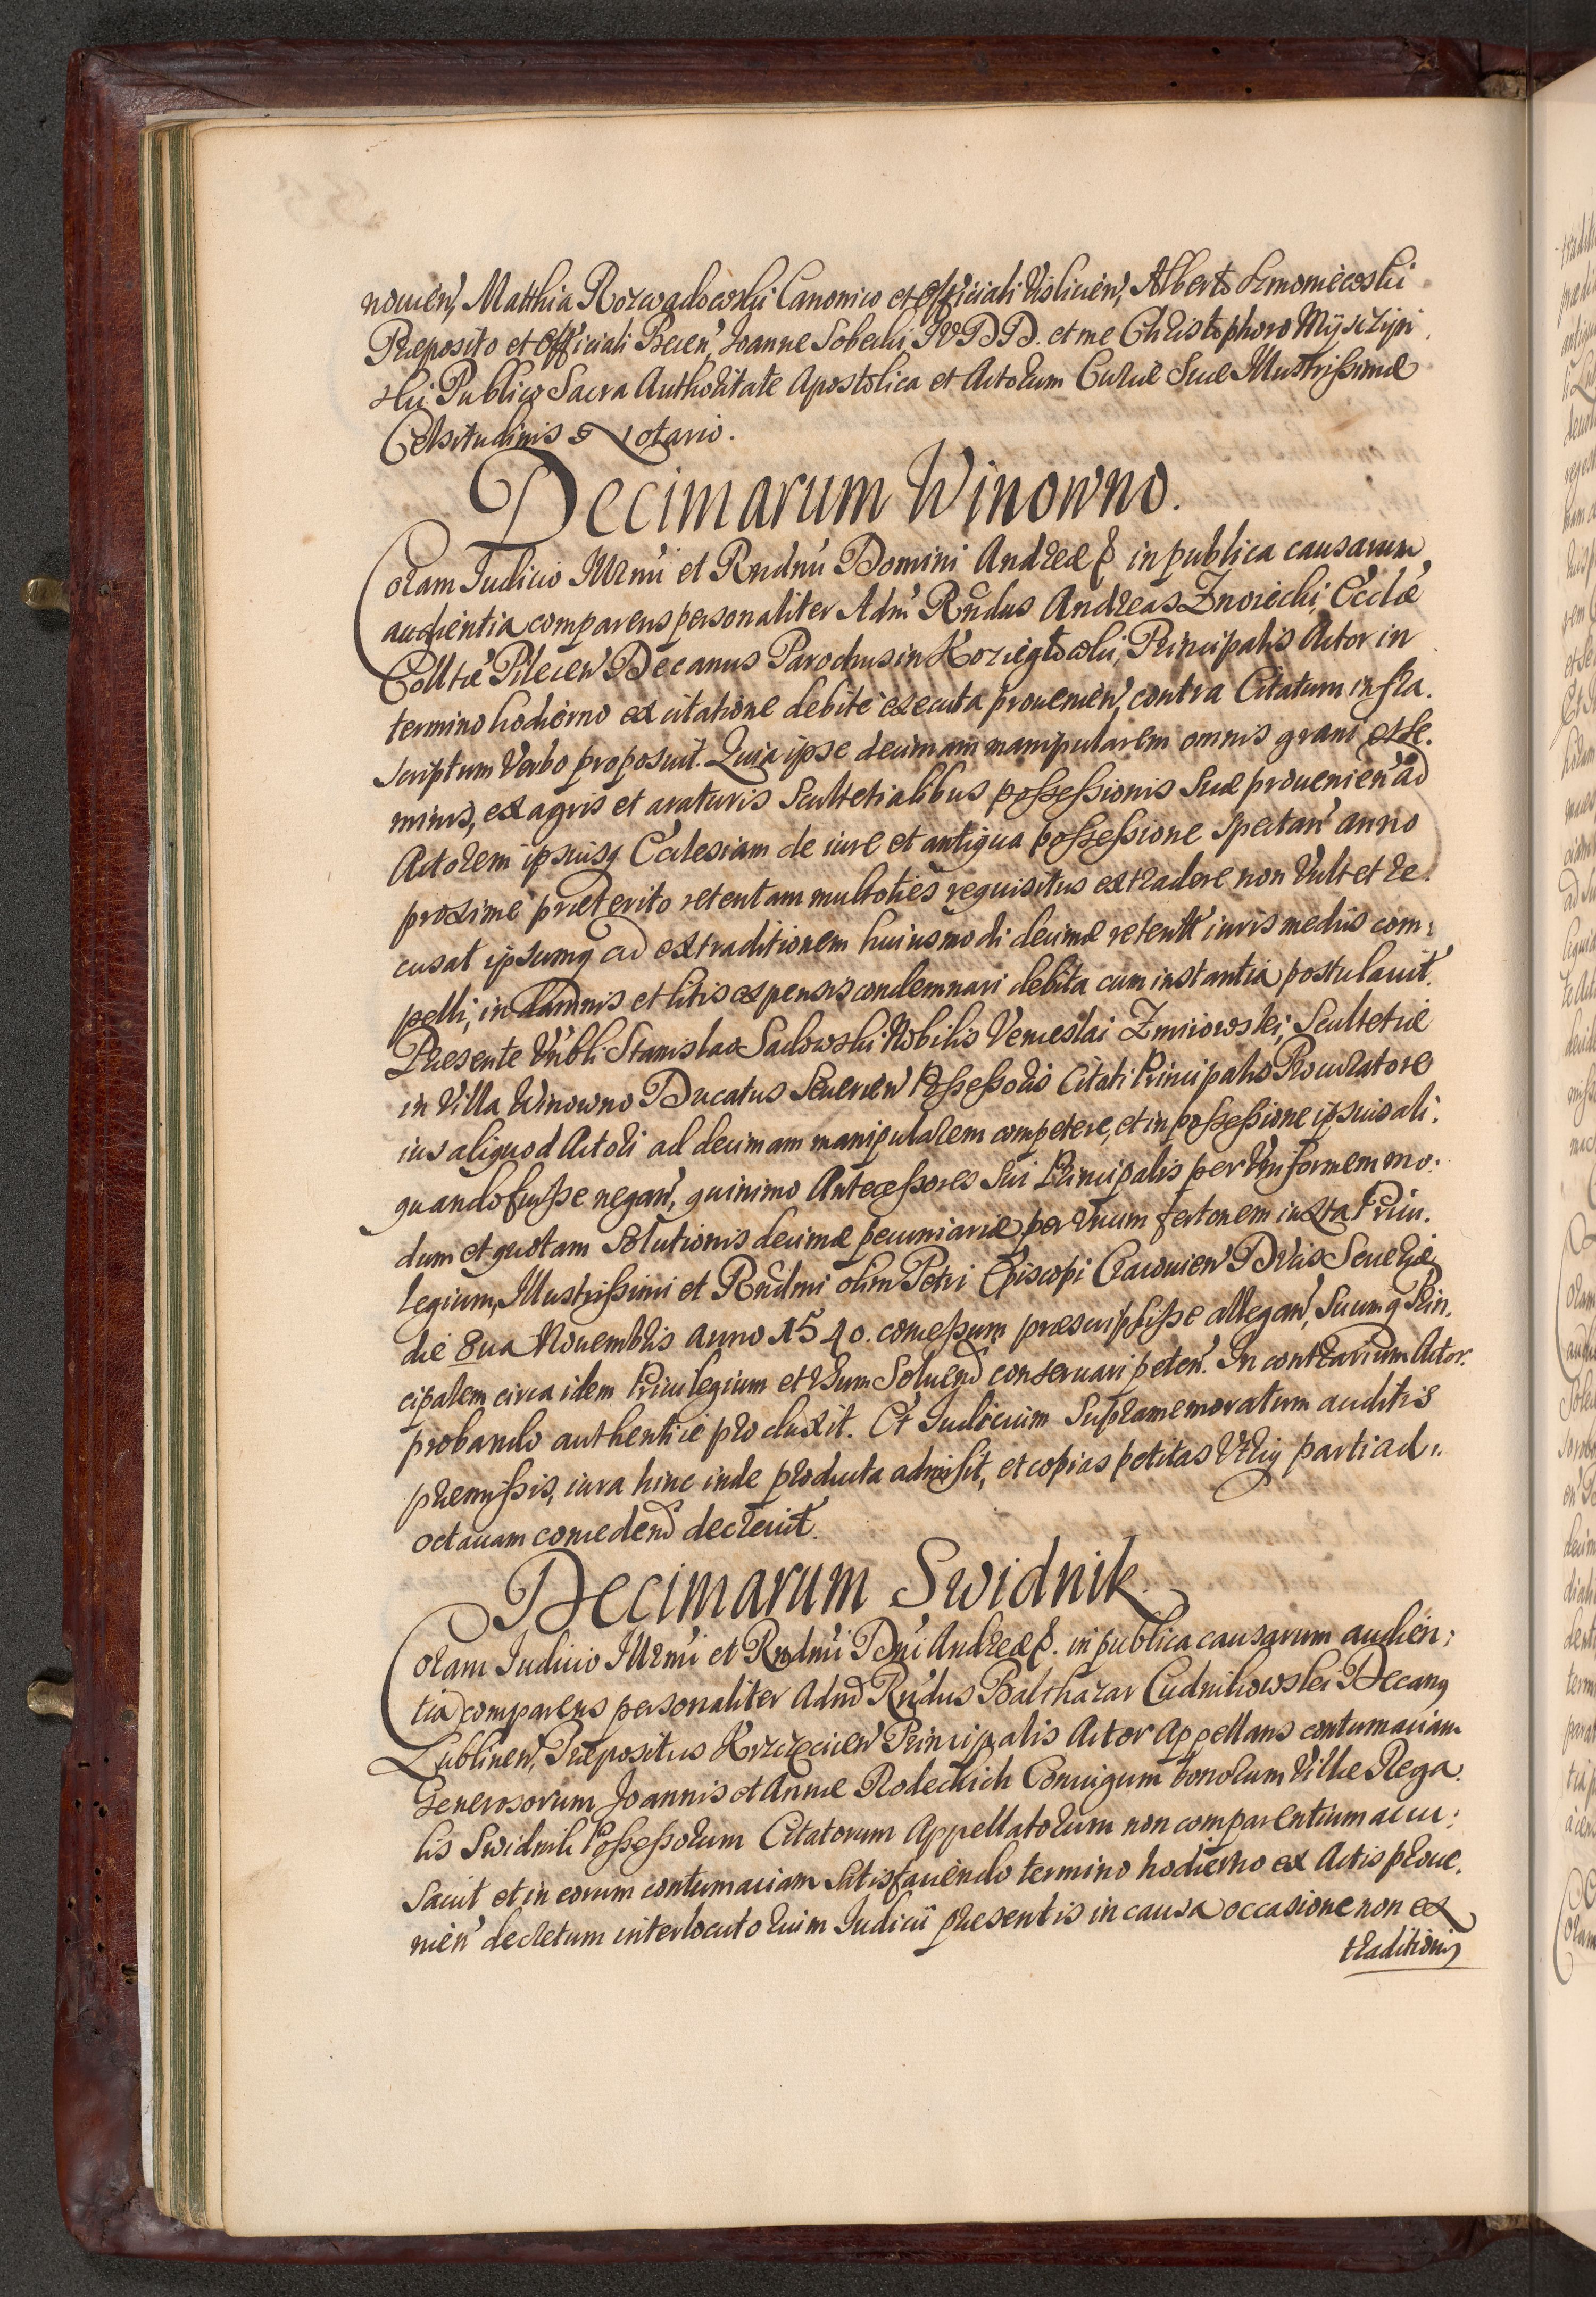 nouien, Matthia Rozwadowski Canonico et Officiali Visliciẽn, Alberto Lmoniewski
Præposito et Officiali Becen, Joanne Sobecki JVDD. et me Christophoro Mijszijn
ski Publico Sacra Authoritate Apostolica et Actorum Curiæ Suæ Illustrissimæ
Celsitudinis Notario.
Decimarum Winowno.
Coram Iudicio Illrmi et Rndmi Domini Andreæ &. in publica causarum
audientia comparens personaliter Adm Rndus Andreas Znoiecki Eccliæ
Colltæ Pilecen Decanus Parochus in Kozieglowki, Principalis Actor in
termino hodierno ex citatione debite executa prouenien, contra Citatum infra.
scriptum Verbo proposuit. Quia ipse decimam manipularem omnis grani esse.
minis, ex agris et araturis Scultetialibus possessionis suæ prouenien ad
Actorem ipsiusq Ecclesiam de iure et antiqua possessione spectan anno
proxime præterito retentam multoties requisitus extradere non Vult et re.
cusat ipsumq ad extraditionem huiusmodi decimæ retentæ iuris mediis com:
pelli, in damnis et litis expensis condemnari debita cum instantia postulauit.
Præsente Vnbli Stanislao Sadowski Nobilis Venceslai Zmiiowski, Scultetiæ
in Villa Winowno Ducatus Seuerien Possessoris Citati Principalis Procuratore
ius aliquod Actori ad decimam manipularem competere, et in possessione ipsius ali.
quando fuisse negan, quinimo Antecessores Sui Principalis per Vniformem mo.
dum et quotam solutionis decimæ pecuniariæ per Vnum fertonem iuxta Priui.
legium, Illustrissimi et Rndmi olim Petri Episcopi Cracouien Ducis Seueriæ
die 8ua Nouembris anno 1540. concessum præscripsisse allegan, Suumq Prin.
cipalem circa idem Priuilegium et Vsum Soluend conseruari peten. In contrarium Actor.
probando authentice produxit. Et Iudicium Supramemoratum auditis
præmissis, iura hinc inde producta admisit, et copias petitas Vtriq parti ad..
octauam concedend decreuit.
Decimarum Swidnik.
Coram Iudicio Illrmi et Rndmi Dni Andreæ &. in publica causarum audien:
tia comparens personaliter Admd Rndus Balthazar Cudnikowski Decanq
Lublinen, Præpositus Krzczecien Principalis Actor Appellans contumaciam
Generosorum Joannis et Annæ Rodeckich Coniugum bonorum Villæ Rega.
lis Swidnik Possessorum Citatorum Appellatorum non comparentium accu:
sauit et in eorum contumaciam satisfaciendo termino hodierno ex Actis proue.
nien decretum interlocutorium Iudicii præsentis in causa occasione non ex
traditionis